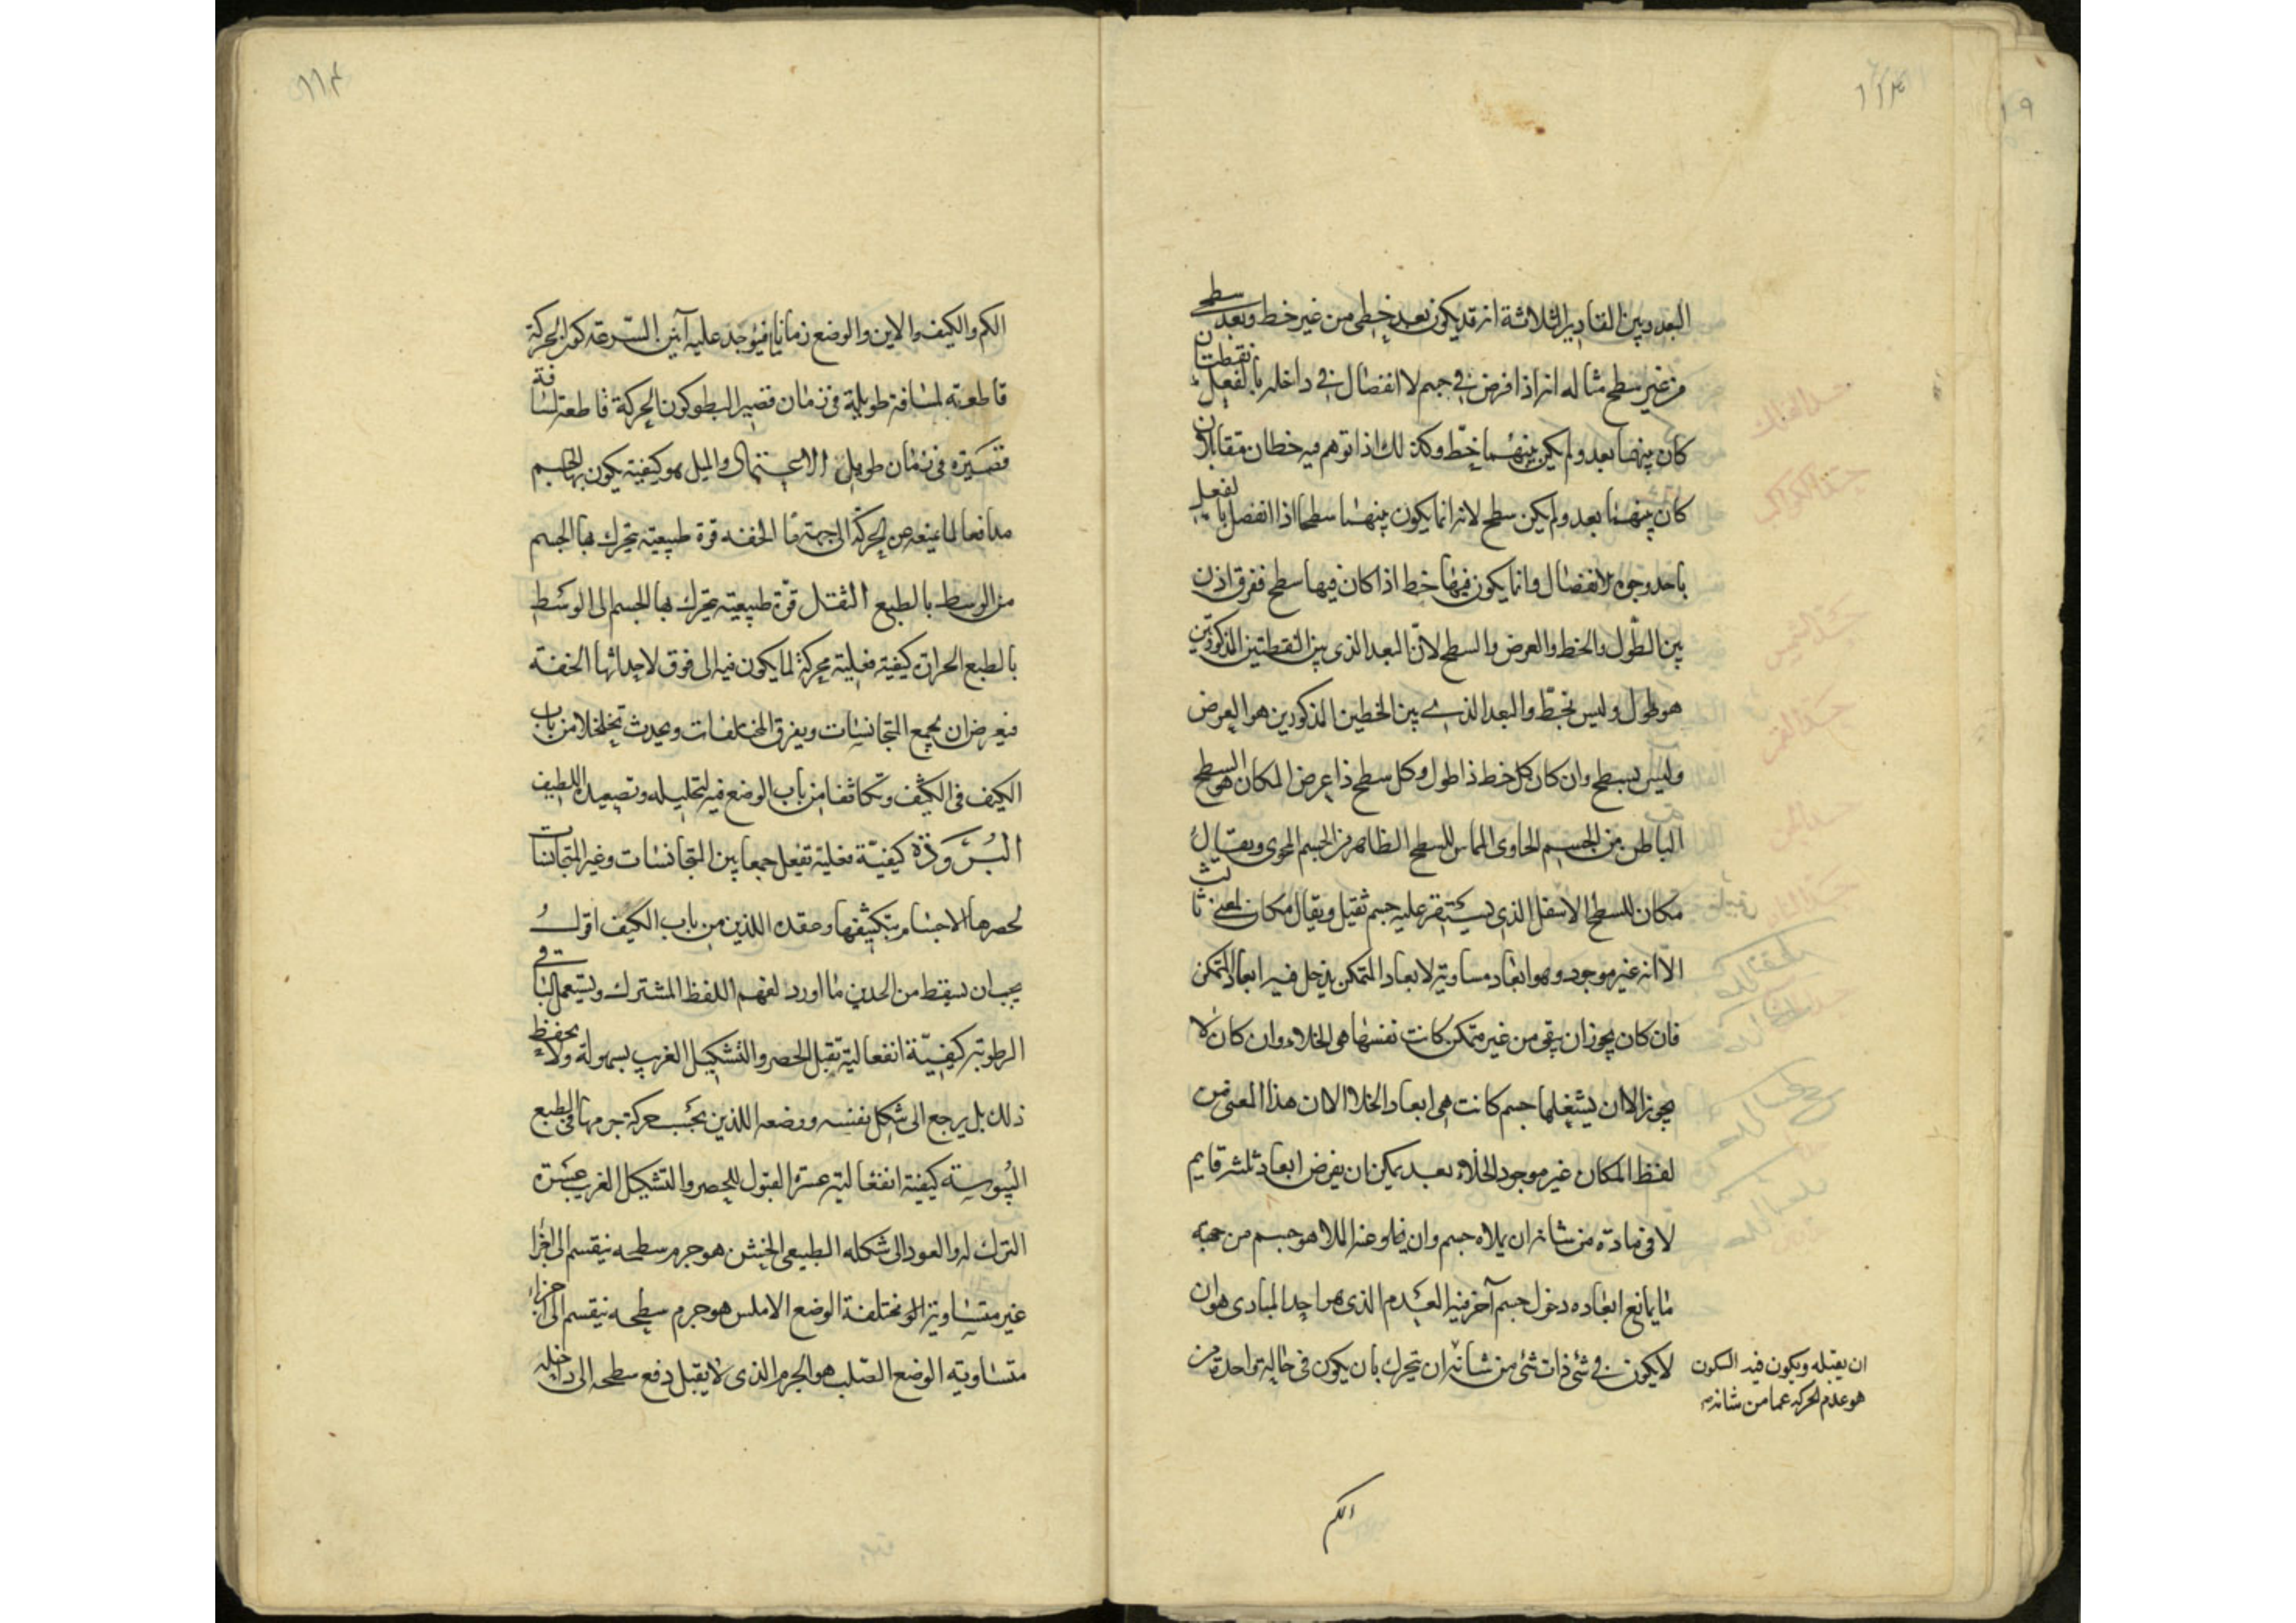 البعد وبين المقادير الثلاثة انه قد يكون بعد خطى من غير خط وبعد سطحى
من غير سطح مثاله انه اذا فرض فى جسم لا انفصال فى داخله بالفعل نقطتان
كان بينهما بعد ولم يكن بينهما خط وكذلك اذا توهم فيه خطان متقابلان
كان بينهما بعد ولم يكن سطح لانه انما يكون بينهما سطح اذا انفصل بالفعل
باحد وجوه الانفصال وانما يكون فيها خط اذا كان فيها سطح ففرق اذن
بين الطول والخط والعرض والسطح لان البعد الذى بين النقطتين المذكورتين
هو طول وليس بخط والبعد الذى بين الخطين المذكورين هو العرض
وليس بسطح وان كان كل خط ذا طول وكل سطح ذا عرض المكان هو السطح
الباطن من الجسم الحاوى المماس للسطح الظاهر من الجسم المحوى ويقال
مكان للسطح الاسفل الذى يستقر عليه جسم ثقيل ويقال مكان لمعنى ثالث
الا انه غير موجود وهو ابعاد مساوية لابعاد المتمكن يدخل فيه ابعاد المتمكن
فان كان يجوز ان يبقى من غير متمكن كانت نفسها هى الخلاء وان كان لا
يجوز الا ان يشغلها جسم كانت هى ابعاد الخلا الا ان هذا المعنى من
لفظ المكان غير موجود الخلاء بعد يمكن ان يفرض ابعاد ثلثه قايم
لا فى مادة من شانه ان يملاه جسم وان يخلو عنه الملا هو جسم من جهة
ما يمانع ابعاده دخول جسم آخر فيه العدم الذى هو احد المبادى هو ان
لا يكون فى شئ ذات شئ من شانه ان يتحرك بان يكون فى حالة واحدة من
ان يقبله ويكون فيه السكون
هو عدم الحركة عما من شانه
الكم
الكم والكيف والاين والوضع زمانا فيوجد عليه آنين السرعة كون الحركة
قاطعة لمسافة طويلة فى زمان قصير البطو كون الحركة قاطعة لمسافة
قصيرة فى زمان طويل الاعتماد والميل هو كيفية يكون بها الجسم
مدافعا لما يمنعه عن الحركة الى جهة ما الخفه قوة طبيعية يتحرك بها الجسم
من الوسط بالطبع الثقل قوة طبيعية يتحرك بها الجسم الى الوسط
بالطبع الحرارة كيفية فعلية محركة لما يكون فيه الى فوق لاحداثها الخفة
فيعرض ان يجمع المتجانسات ويفرق المختلفات ويحدث تخلخلا من باب
الكيف فى الكثيف وتكاثفا من باب الوضع فيه لتحليله وتصعيده اللطيف
البرودة كيفية فعلية تفعل جمعا بين المتجانسات وغير المتجانسات
لحصرها الاجسام بتكثيفها وعقده اللذين من باب الكيف اقول
يجب ان يسقط من الحدين ما اورد لفهم اللفظ المشترك ويستعمل الباقى
الرطوبة كيفية انفعالية تقبل الحصر والتشكيل الغريب بسهولة ولا يحفظ
ذلك بل يرجع الى شكل نفسه ووضعه اللذين بحسب حركة جرمها فى الطبع
اليبوسة كيفية انفعالية عسرة القبول للحصر والتشكيل الغريب عسرة
الترك له والعود الى شكله الطبيعى الخشن هو جرم سطحه ينقسم الى اجزا
غير متساوية الو مختلفة الوضع الاملس هو جرم سطحه ينقسم الى اجزاء
متساوية الوضع الصلب هو الجرم الذى لا يقبل دفع سطحه الى داخله